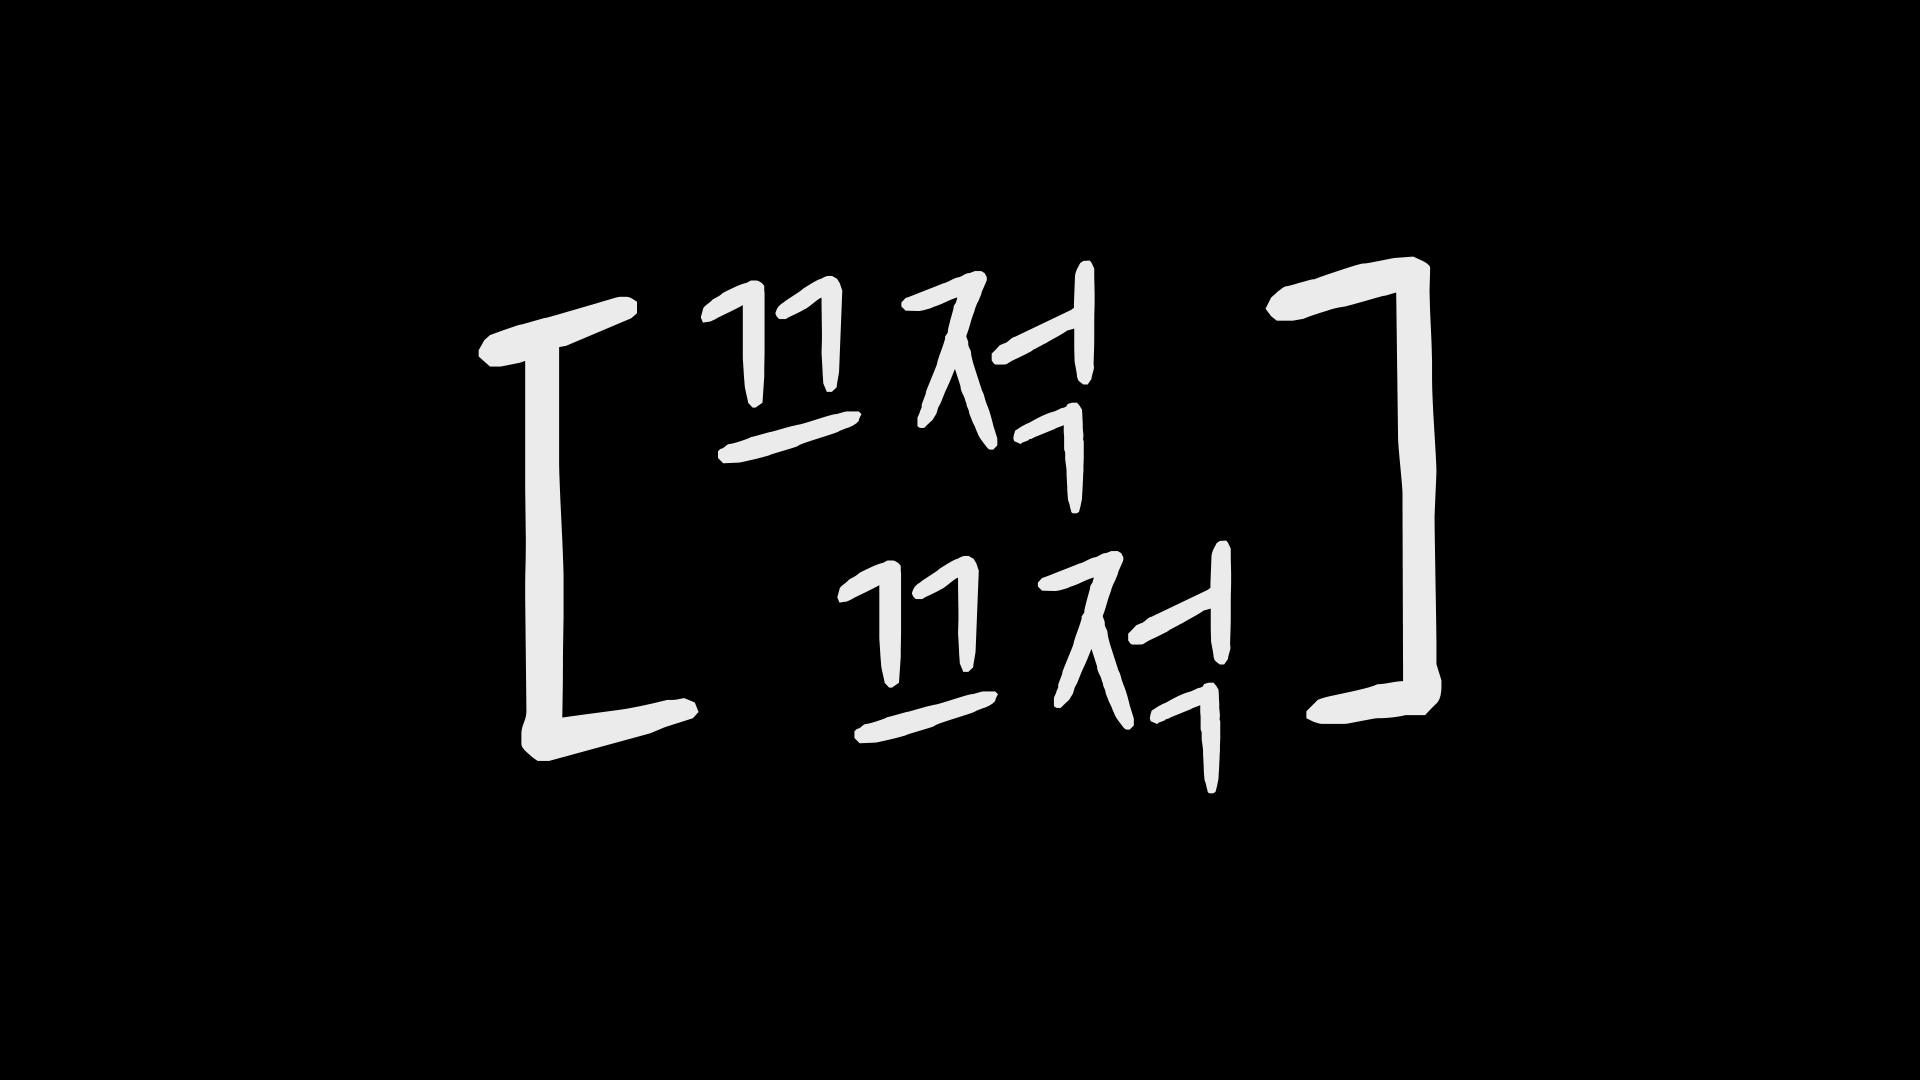 [끄적
끄적]